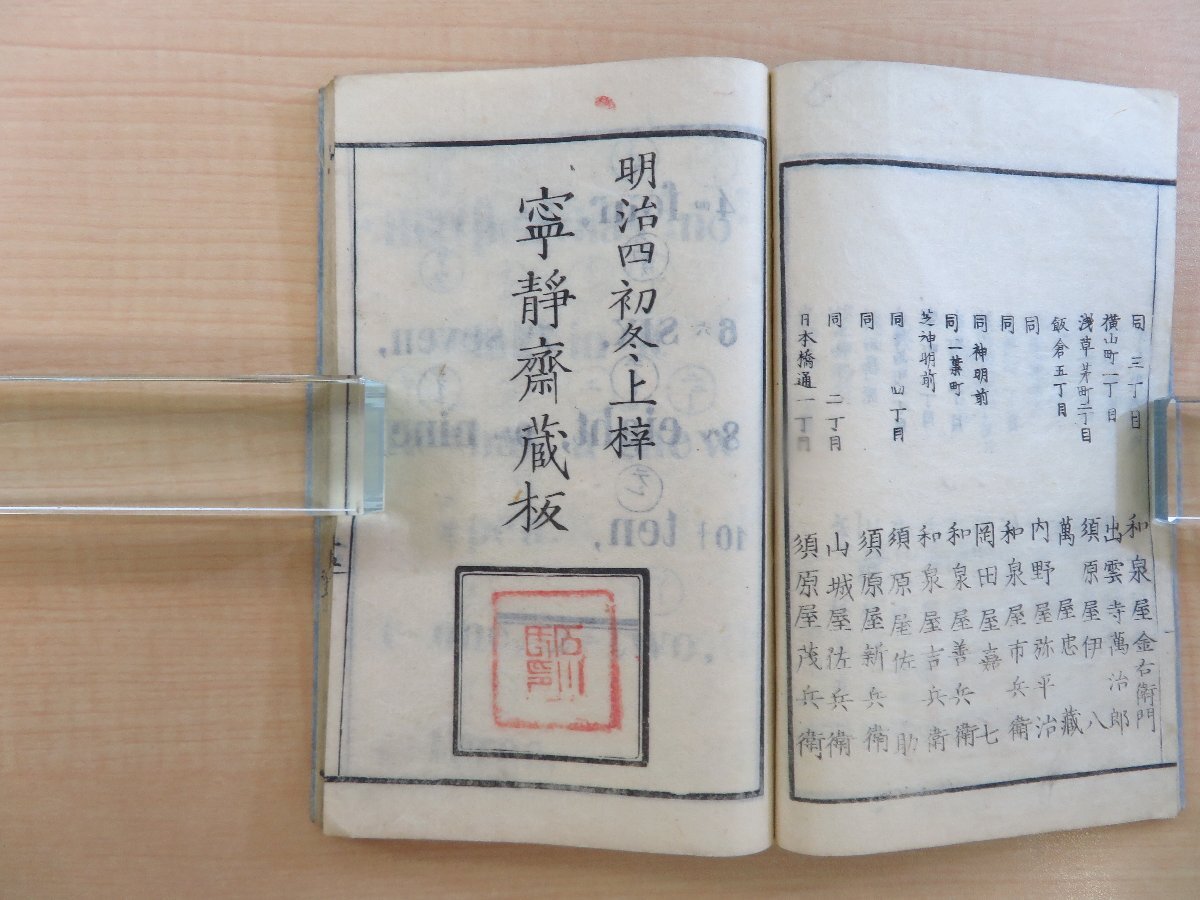 同 三丁目 和泉屋金右衛門
横山町一丁目 出雲寺萬治郎
浅草茅町二丁目 須原屋伊八
飯倉五丁目 萬屋忠蔵
同 内野屋弥平治
同 和泉屋市兵衛
同 神明前 岡田屋嘉七
同 一葉町 和泉屋善兵衛
芝神明前 和泉屋吉兵衛
同 四丁目 須原屋佐助
同 須原屋新兵衛
同 二丁目 山城屋佐兵衛
日本橋通一丁目 須原屋茂兵衛
明治四初冬上梓
寧靜齋蔵板